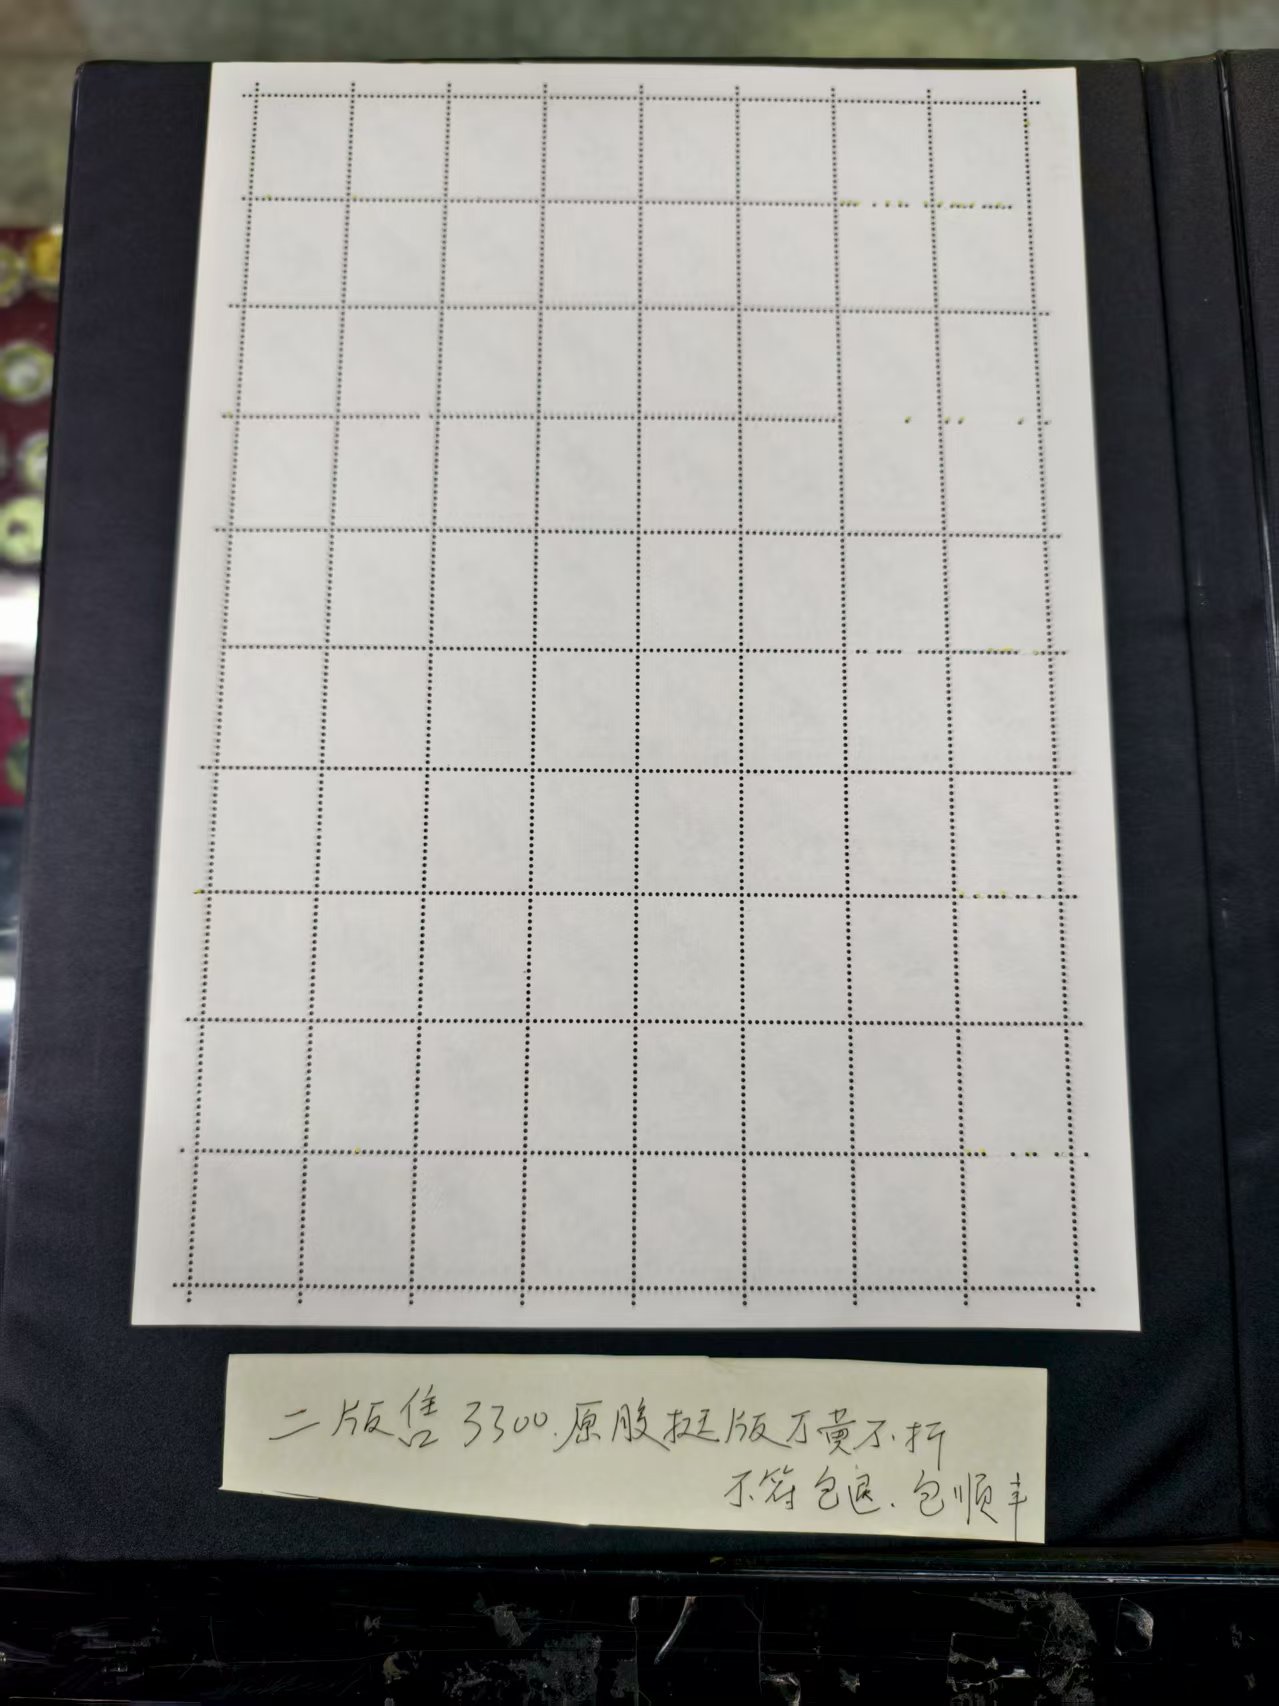 二版售3300.原胶挺版不黄不折
不符包退.包顺丰